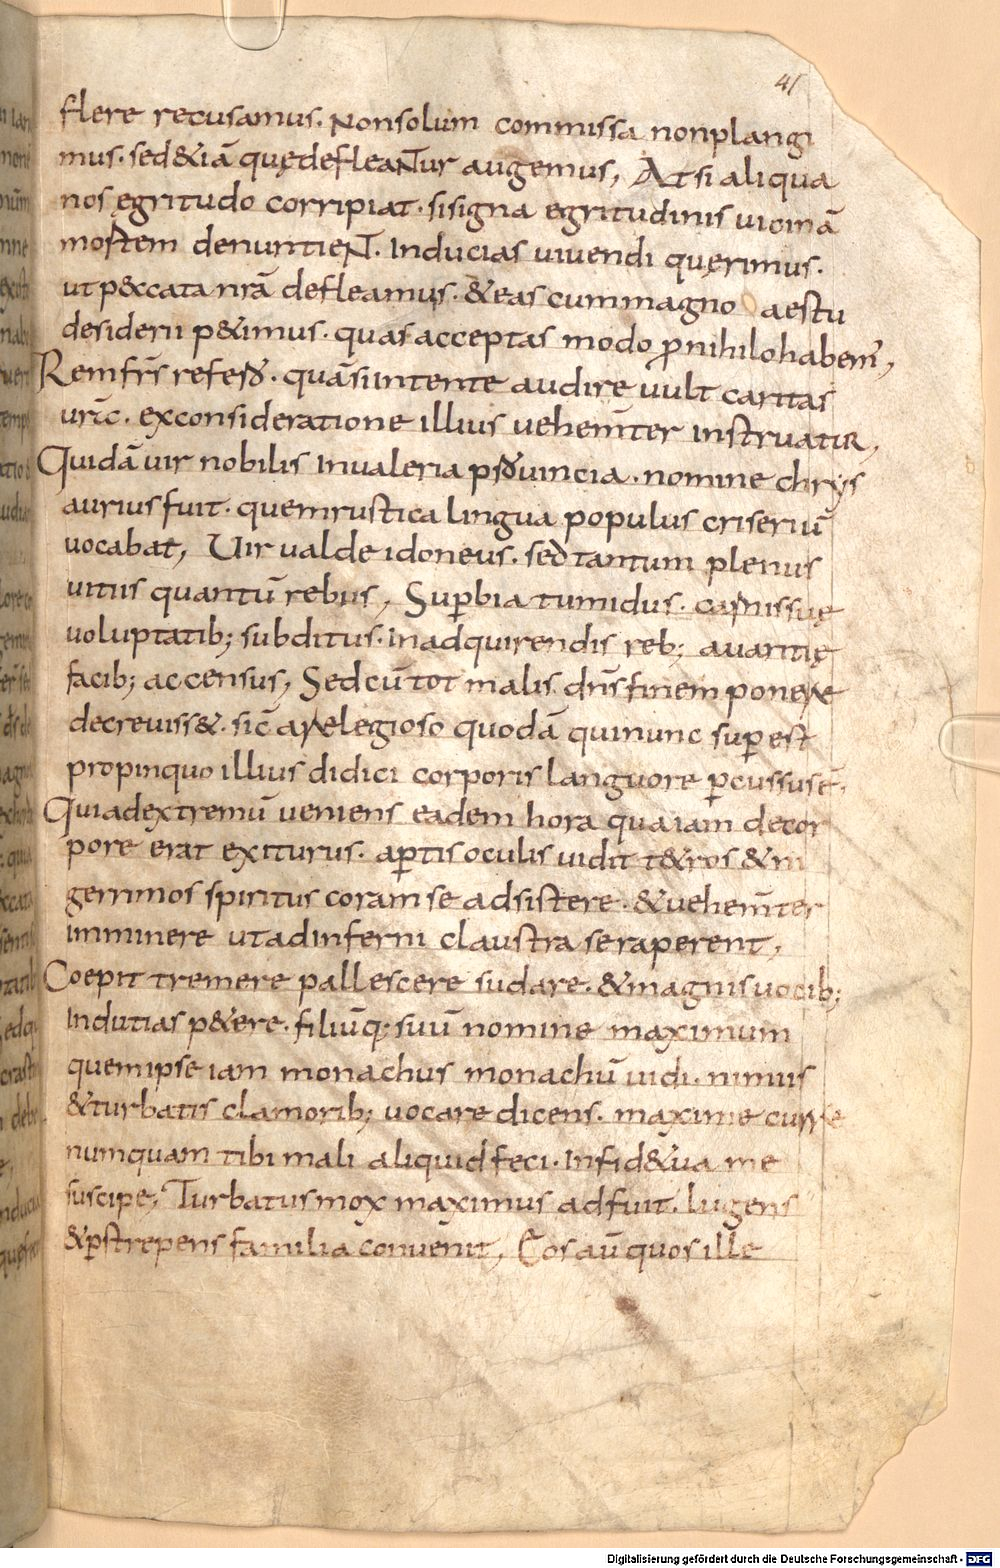 41
flere recusamus. Nonsolum commissa nonplangi
mus. sed&iā quędefleaNTur augemus, At si aliqua
nos ęgritudo corripiat. sisigna egritudinis uicinā
mortem denuntieNT. Inducias uiuendi quęrimus.
ut p&ccata nr̄ā defleamus. &eas cummagno aestu
desiderii p&imus. quas acceptas modo ꝓnihilohabem̄,
Remfr̄s refero. quāsiintente audire uult caritas
ur̄ā. exconsideratione illius uehem̄ter instruatur,
Quidā uir nobilis Inualeria prouincia. nomine chrys
aurius fuit. quemrustica lingua populus criseriū
uocabat, Uir ualde idoneus. sed tantum plenus
uitiis quantū rebus, Suꝑbia tumidus. carnissuę
uoluptatib; subditus. inadquirendis reb; auaritię
facib; accensus, Sedcū tot malis dn̄s finem ponere
decreuiss&. sic̄ arelegioso quodā quinunc suꝑest
propinquo illius didici corporis languore ꝑcussusē.
Quiadextremū ueniens eadem hora quaiam decor
pore erat exiturus. aꝑtis oculis uidit t&ros &ni
gerrimos spiritus coramse adsistere. &uehem̄ter
imminere utadinferni claustra seraperent,
Coepit tremere pallescere sudare. &magnis uocib;
Indutias p&ere. filiūq; suū nomine maximum
quemipse iam monachus monachū uidi. nimiis
&turbatis clamorib; uocare dicens. maxime curre
numquam tibi mali aliquid feci. Infid&ua me
suscipe, Turbatus mox maximus adfuit. lugens
&ꝑstrepens familia conuenit, Eos aū quos ille
Digitalisierung gefördert durch die Deutsche Forschungsgemeinschaft - DFG